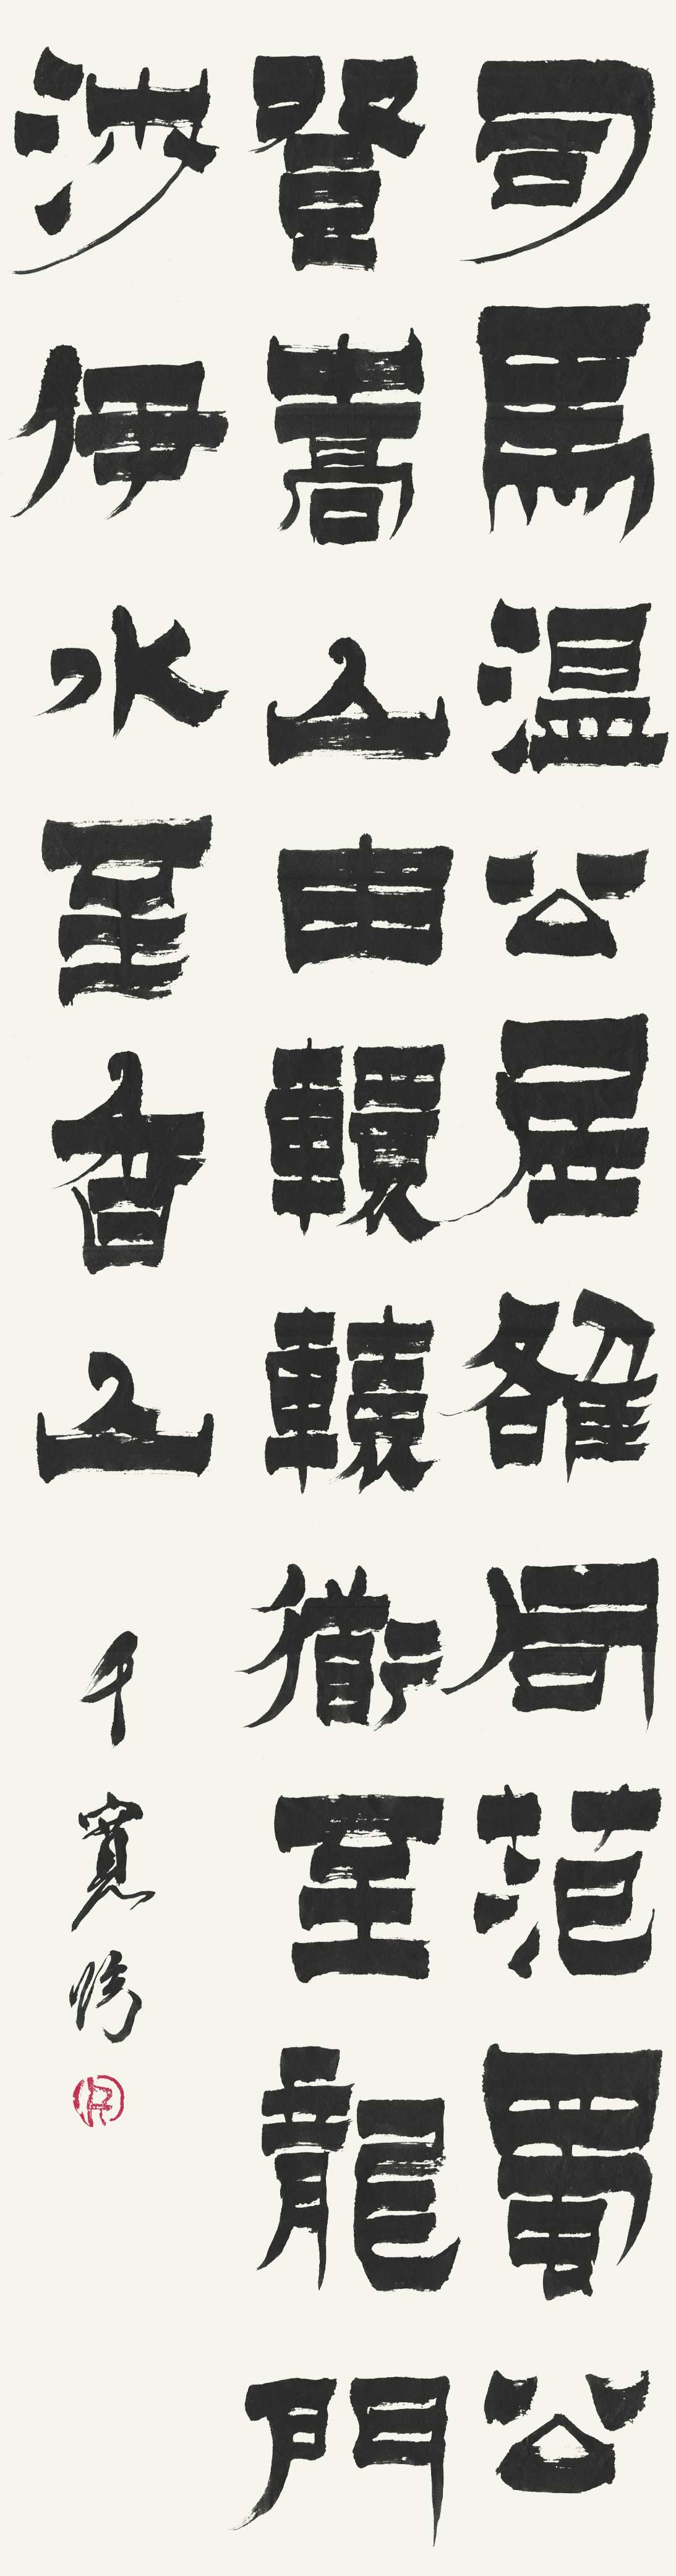 司馬温公居雒同范蜀公
登嵩山由轘轅衜至龍門
涉伊水至香山
寬